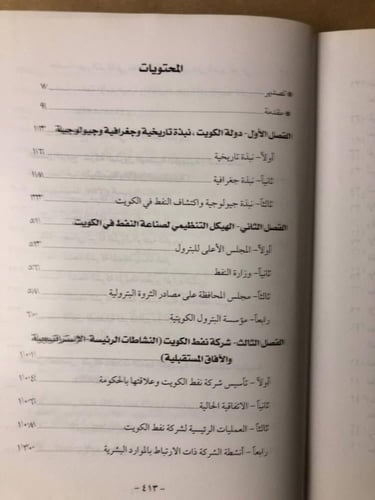 المحتويات
● تصدير
● مقدمة
الفصل الأول - دولة الكويت، نبذة تاريخية وجغرافية وجيولوجية
أولاً - نبذة تاريخية
ثانياً - نبذة جغرافية
ثالثاً - نبذة جيولوجية واكتشاف النفط في الكويت
الفصل الثاني - الهيكل التنظيمي لصناعة النفط في الكويت
أولاً - المجلس الأعلى للبترول
ثانياً - وزارة النفط
ثالثاً - مجلس المحافظة على مصادر الثروة البترولية
رابعاً - مؤسسة البترول الكويتية
الفصل الثالث - شركة نفط الكويت (النشاطات الرئيسة - الإستراتيجية
والآفاق المستقبلية)
أولاً - تأسيس شركة نفط الكويت وعلاقتها بالحكومة
ثانياً - الاتفاقية الحالية
ثالثاً - العمليات الرئيسية لشركة نفط الكويت
رابعاً - أنشطة الشركة ذات الارتباط بالموارد البشرية
- ٤١٣ -